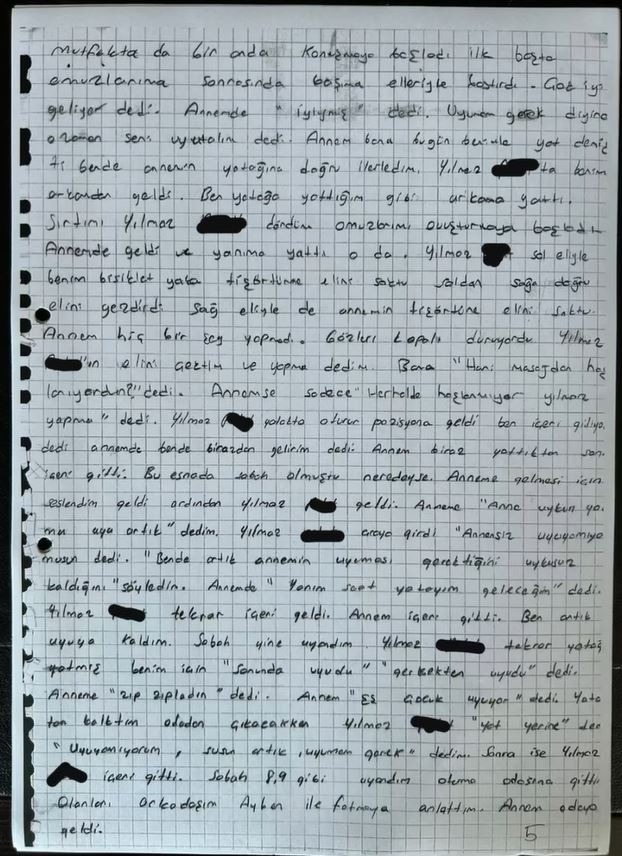 Mutfakta da bir anda konuşmaya başladı ilk başta
omuzlarıma sonrasında başıma elleriyle bastırdı. Çok iyi
geliyor dedi. Annemde "iyiymiş" dedi. Uyumam gerek diyince
o zaman seni uyutalım dedi. Annem bana bugün benimle yat demiş
ti bende annemin yatağına doğru ilerledim. Yılmaz ta benim
arkamdan geldi. Ben yatağa yattığım gibi arkama yattı.
Sırtımı Yılmaz döndüm omuzlarımı ovuşturmaya başladı
Annemde geldi ve yanıma yattı o da. Yılmaz sol eliyle
benim bisiklet yaka tişörtüme elini soktu soldan sağa doğru
elini gezdirdi sağ eliyle de annemin tişörtüne elini soktu.
Annem hiç bir şey yapmadı. Gözleri kapalı duruyordu Yılmaz
'ın elini çektim ve yapma dedim. Bana "Hani masajdan hoş
lanıyordun?" dedi. Annemse sadece "Herhalde hoşlanmıyor yılmaz
yapma" dedi. Yılmaz yatakta oturur pozisyona geldi ben içeri gidiyo
dedi annemde bende birazdan gelirim dedi. Annem biraz yattıktan son
içeri gitti. Bu esnada sabah olmuştu neredeyse. Anneme gelmesi için
seslendim geldi ardından Yılmaz geldi. Anneme "Anne uykun ya
mı uyu artık" dedim. Yılmaz araya girdi "Annensiz uyuyamıyo
musun dedi. "Bende artık annemin uyuması gerektiğini uykusuz
kaldığını" söyledim. Annemde "Yarım saat yatayım geleceğim" dedi.
Yılmaz tekrar içeri geldi. Annem içeri gitti. Ben artık
uyuya kaldım. Sabah yine uyandım. Yılmaz tekrar yatağ
yatmış benim için "sonunda uyudu" "gerçekten uyudu" dedi.
Anneme "zıp zıpladın" dedi. Annem "Şş çocuk uyuyor" dedi. Yata
tan kalktım odadan çıkacakken Yılmaz "yat yerine" dedi
"Uyuyamıyorum, susun artık, uyumam gerek" dedim. Sonra ise Yılmaz
içeri gitti. Sabah 8,9 gibi uyandım oturma odasına gitti
Olanları arkadaşım Ayben ile fatmaya anlattım. Annem odaya
geldi.
5